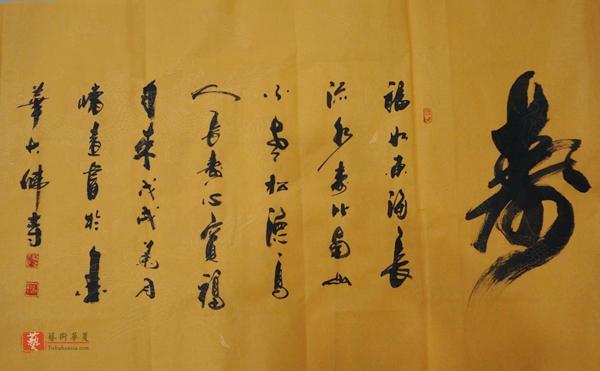 壽
福如東海長
流水壽比南山
不老松德高
人長壽心寬福
自來戊戌月
書於
華大佛寺
藝
藝術華夏
Yishuhuaxia.com